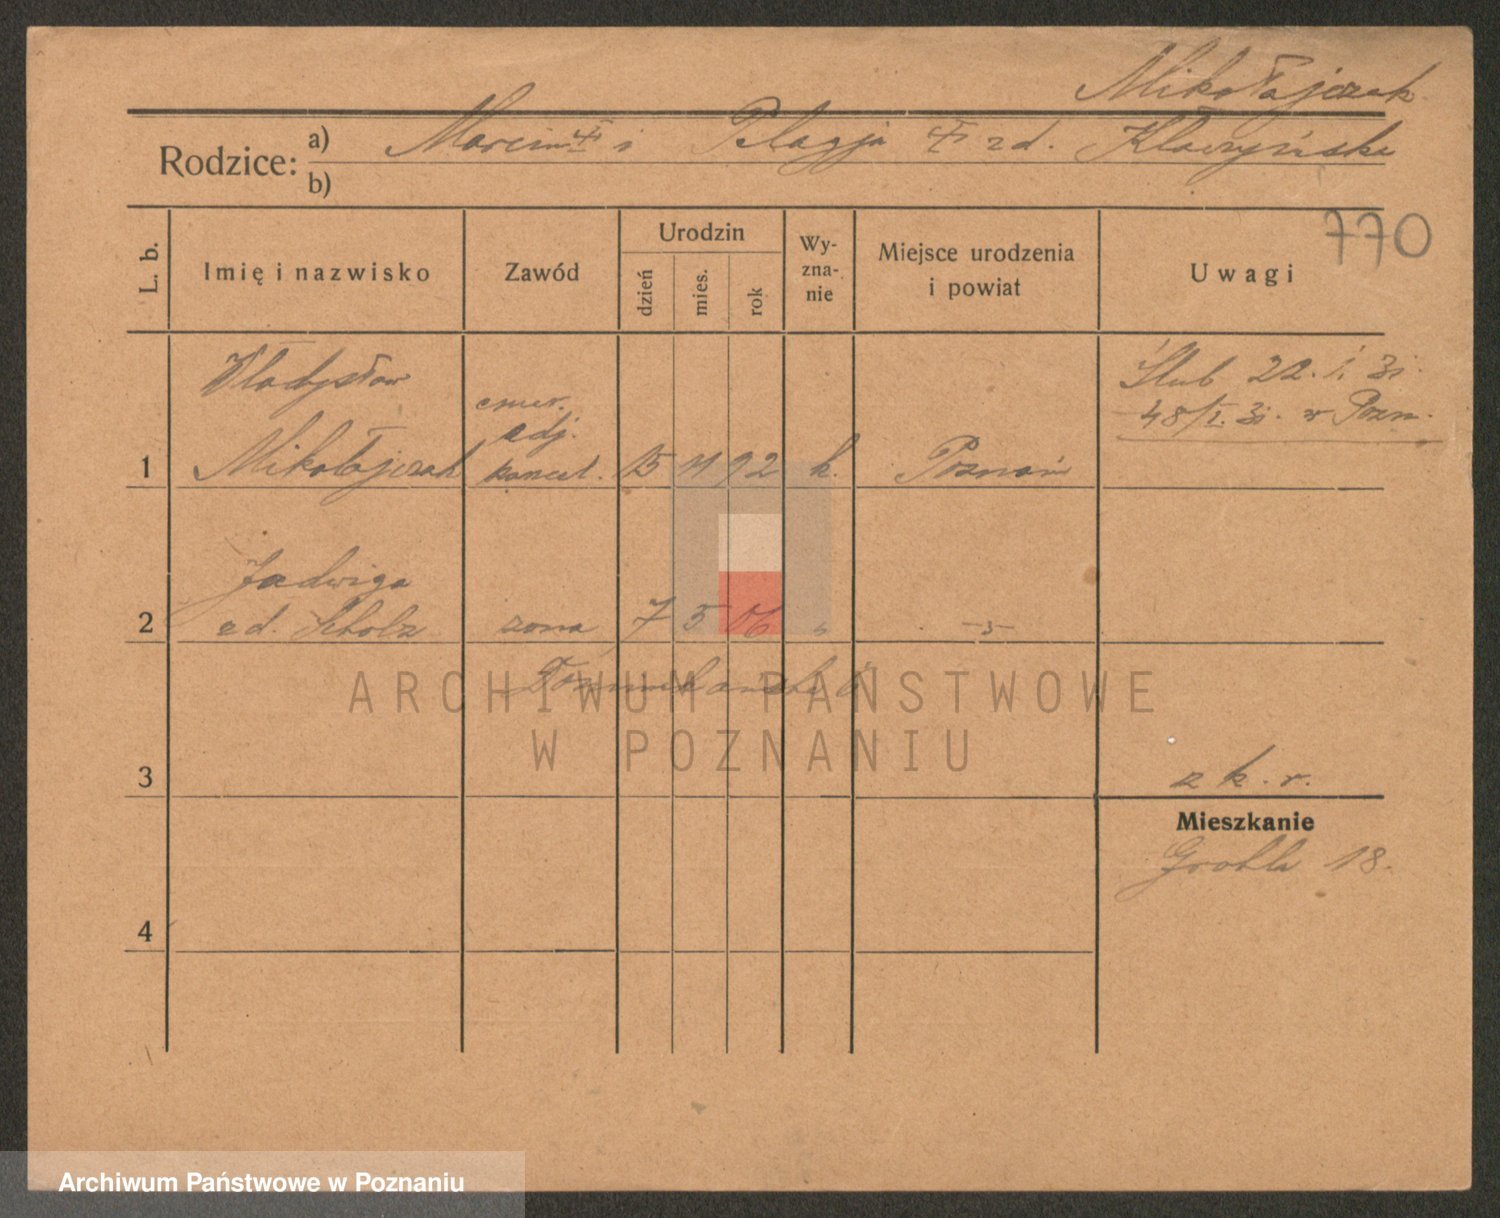 Mikołajczak
Rodzice:
a) Marcin i Pelagja zd. Kłaczyńska
b)
770
L. b.
Imię i nazwisko
Zawód
Urodzin
dzień
mies.
rok
Wy-
zna-
nie
Miejsce urodzenia
i powiat
Uwagi
Władysław
Mikołajczak
emer.
adj.
kancel.
15 11 92 k. Poznań
Ślub 22. 1. 31.
48/I. 31. w Pozn.
1
Jadwiga
zd. Scholz
żona 7 5 06 " -"-
2
3
z k. r.
Mieszkanie
Grobla 18.
4
ARCHIWUM PAŃSTWOWE
W POZNANIU
Archiwum Państwowe w Poznaniu